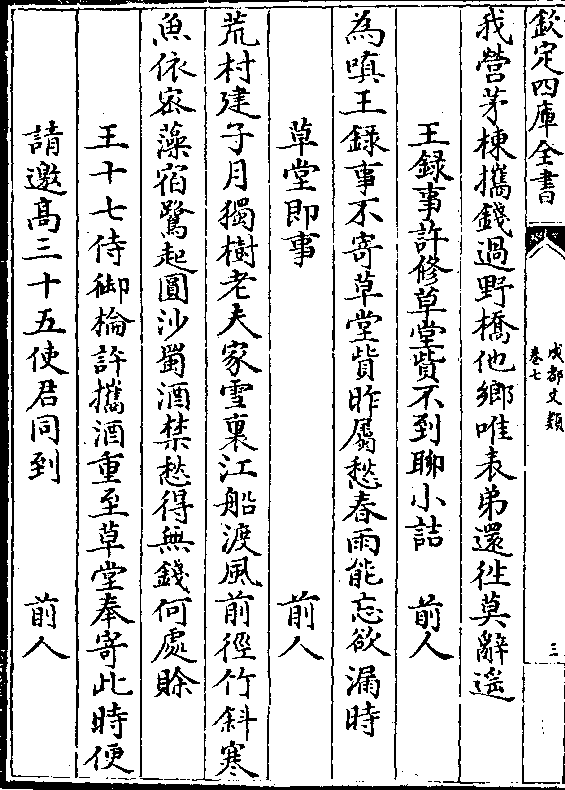 欽定四庫全書
成都文類
卷七
三
我營茅棟攜錢過野橋他鄉唯表弟還徃莫辭遥
王録事許修草堂貲不到聊小詰 前人
為嗔王録事不寄草堂貲昨屬愁春雨能忘欲漏時
草堂即事 前人
荒村建子月獨樹老夫家雪裏江船渡風前徑竹斜寒
魚依宻藻宿鷺起圓沙蜀酒禁愁得無錢何處賖
王十七侍御掄許攜酒重至草堂奉寄此時便
請邀髙三十五使君同到 前人